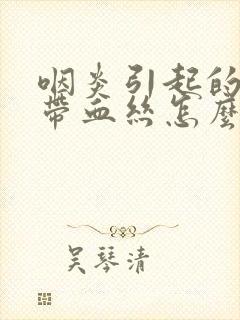 咽炎引起的
带血丝怎麼
吴琴清